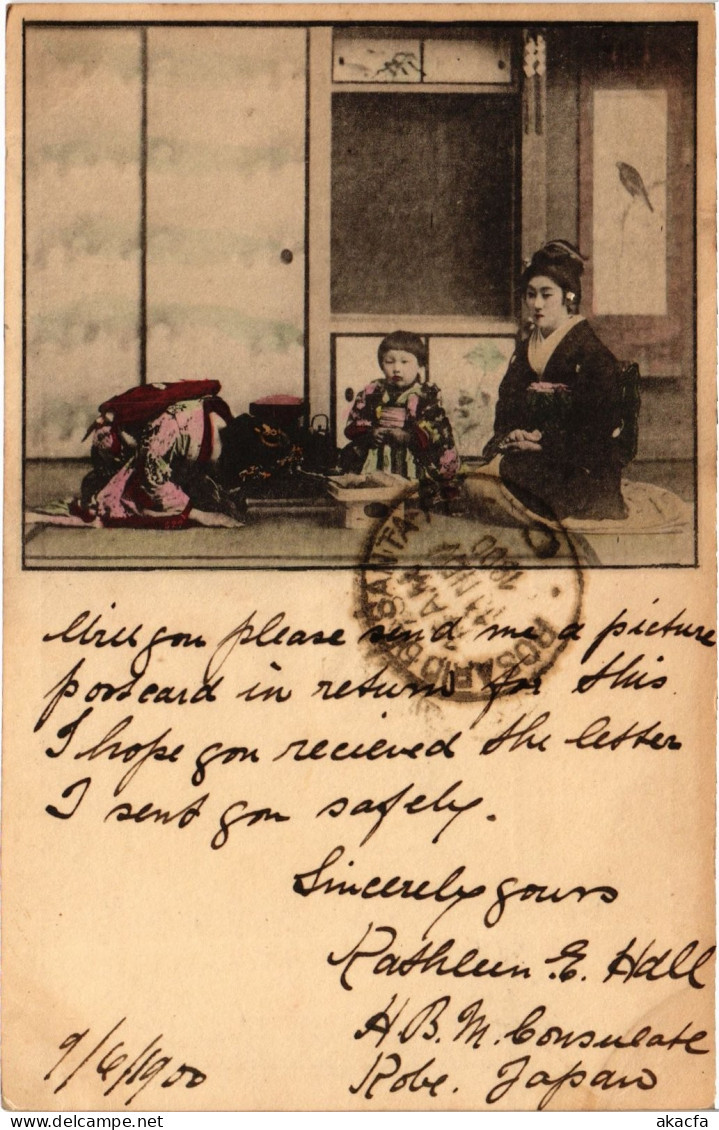 ROSARIO SANTA
AM
NOV
1900
Will you please send me a picture
postcard in return for this.
I hope you recieved the letter
I sent you safely.
Sincerely yours
Kathleen E. Hall
H.B.M. Consulate
Kobe. Japan
9/6/1900
akacfa
www.delcampe.net